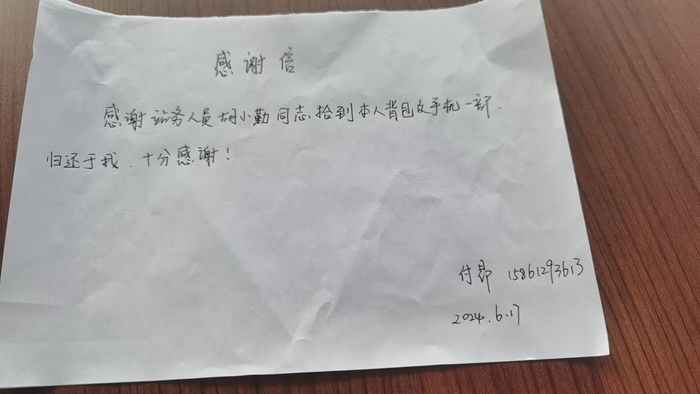 感谢信
感谢站务人员胡小勤同志,拾到本人背包及手机一部.
归还于我.十分感谢!
付昂 15861293613
2024.6.17